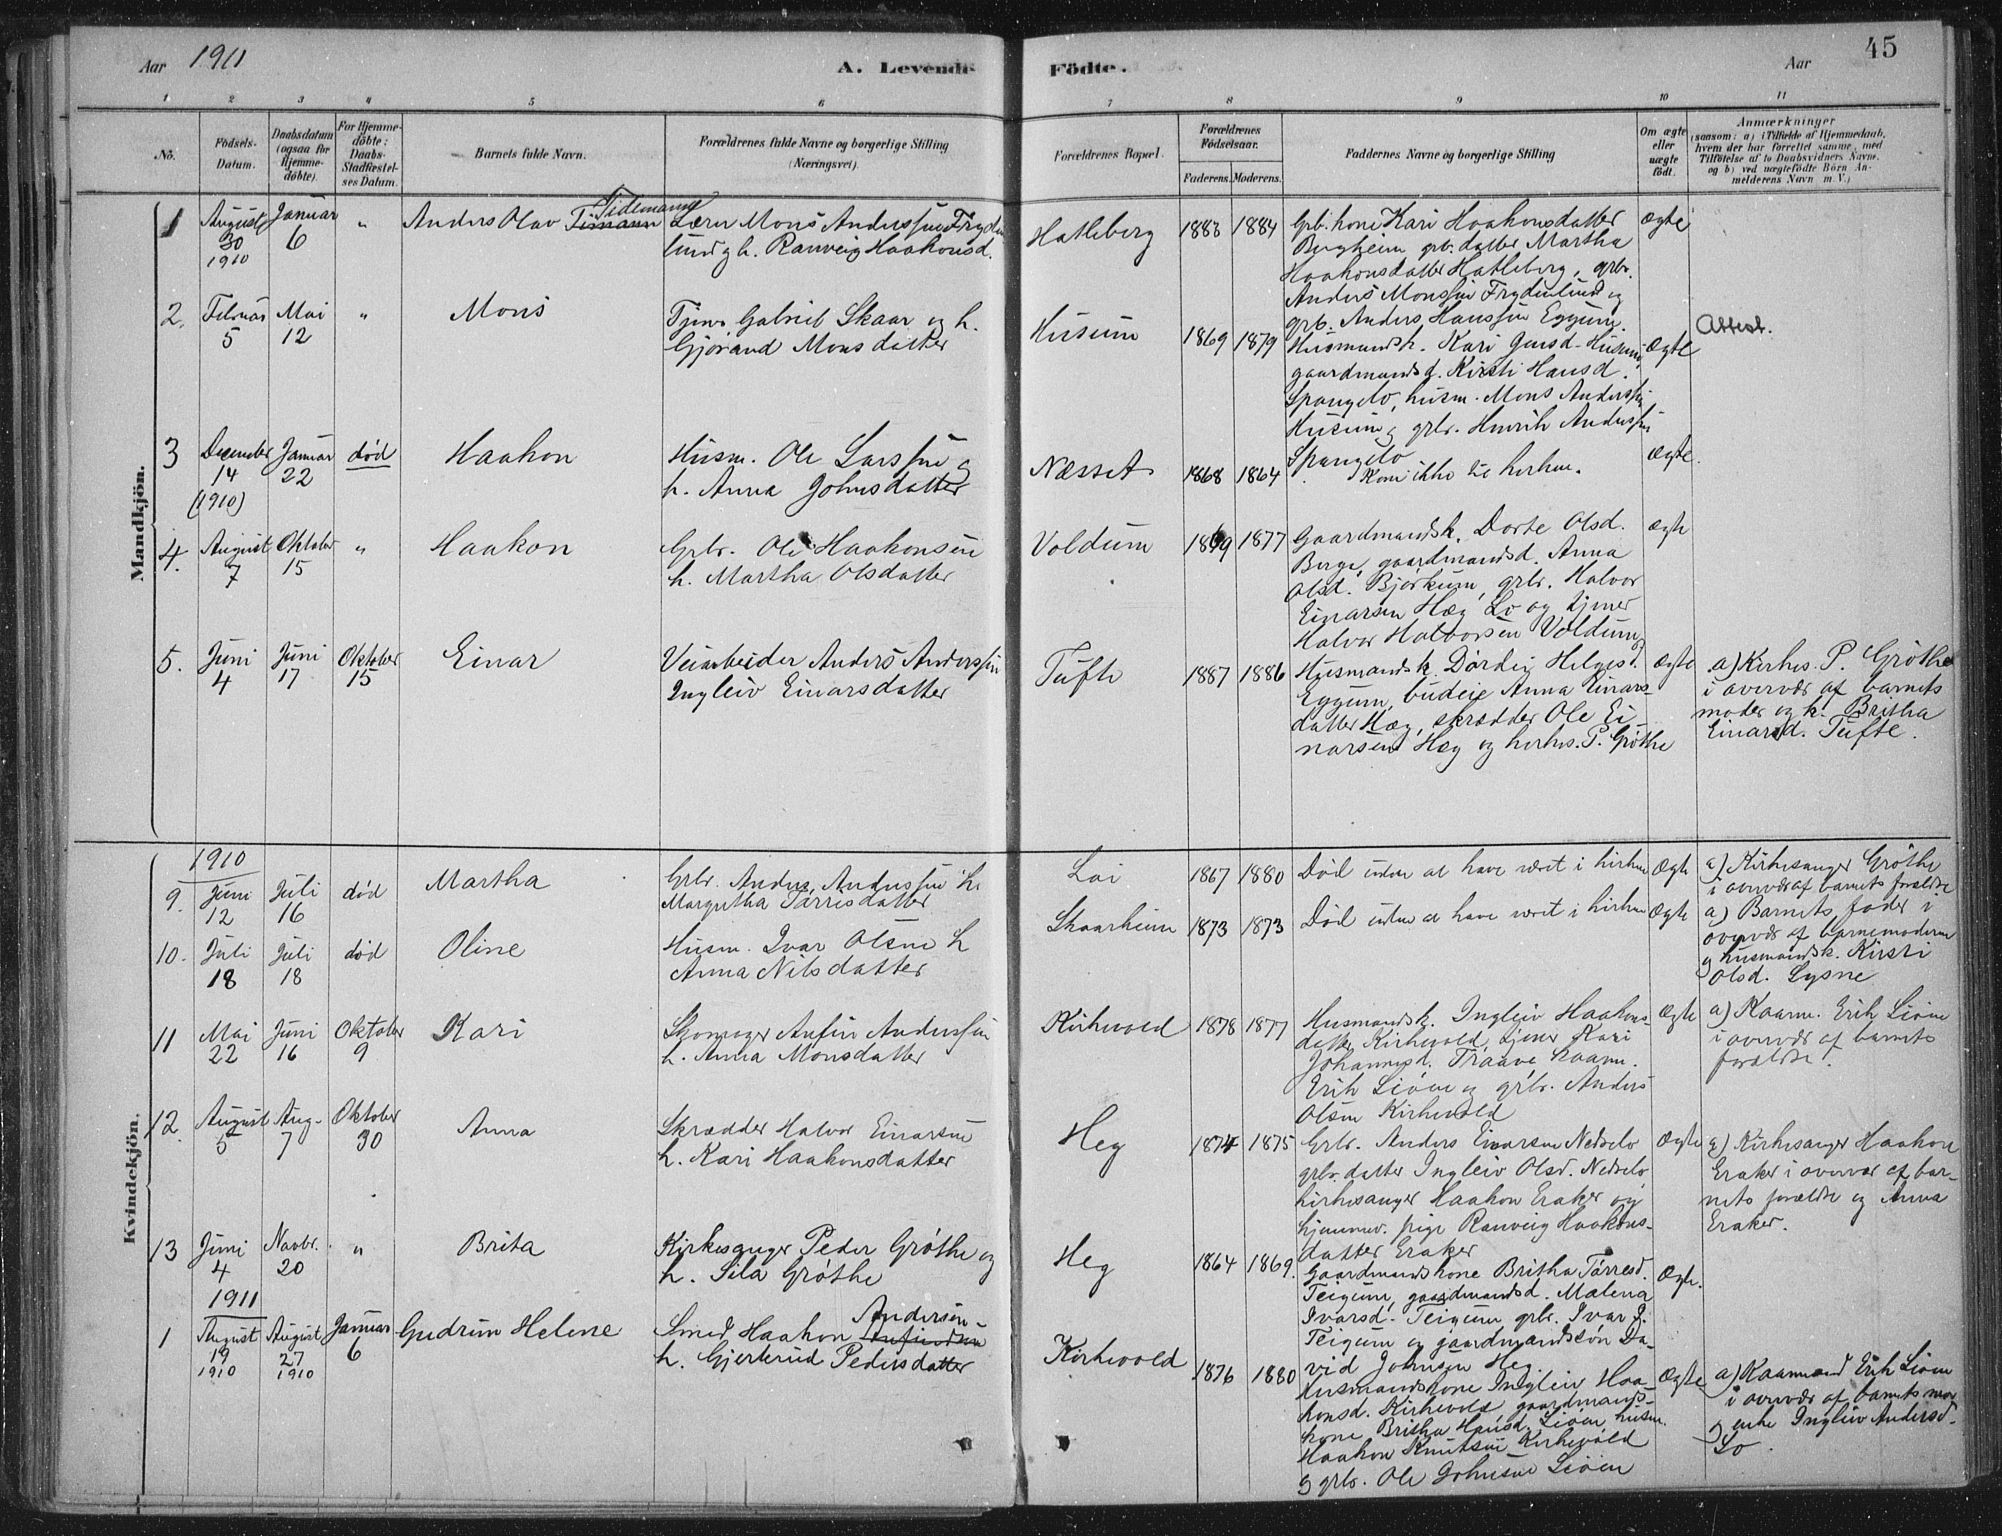 Aar 1911
A. Levende
Födte.
Aar
45
1 2 3 4 5 6 7 8 9 10 11
No.
Födsels-Datum.
Daabsdatum (ogsaa for Hjemme-döbte).
For Hjemme-döbte: Daabs-Stadfæstel-ses Datum.
Barnets fulde Navn.
Forældrenes fulde Navne og borgerlige Stilling (Næringsvei).
Forældrenes Bopæl.
Forældrenes Födselsaar.
Faderens. Moderens.
Faddernes Navne og borgerlige Stilling
Om ægte eller uægte födt.
Anmærkninger
(saasom: a) i Tilfælde af Hjemmedaab, hvem der har forrettet samme, med Tilföielse af to Daabsvidners Navne, og b) ved uægtefödte Börn An-melderens Navn m. V.)
Mandkjön.
1 August 30 1910 Januar 6 " Anders Olav Timann Tidemann
Lærer Mons Anderssen Fryden
lund g h. Ranveig Haakonsd.
Hatleberg 1883 1884
Grb. kone Kari Haakonsdatter
Bergheim grb. datter Martha
Haakonsdatter Hatleberg, grbr.
Anders Monssen Frydenlund og
grb. Anders Hanssen Eggum.
Ægte
2. Februar 5 Mai 12 " Mons
Tjener Gabriel Skaar og h.
Gjørand Monsdatter
Husum 1869 1879
Husmandsk. Kari Gunsd. Husum,
gaardmandsd. Kirsti Hansd.
Spangelo, husm. Mons Anderssen
Husum og grbr. Henrik Anderssen
Spangelo
Ægte
Attest.
3 December 14 (1910) Januar 22 død Haakon
Husm. Ole Larssen og
h. Anna Johnsdatter
Næsset 1868 1864
Kom ikke til kirken.
Ægte.
4. August 7 Oktober 15 " Haakon
Grbr. Ole Haakonsen
h. Martha Olsdatter
Voldum 1869 1877
Gaardmandsk. Dorte Olsd.
Berge, gaardmandsd. Anna
Olsd. Bjørkum, grbr. Halvor
Einarsen Hæg Lo og tjener
Halvor Halvorsen Voldum
Ægte
5. Juni 4 Juni 17 Oktober 15 Einar
Veiarbeider Anders Anderssen
Ingleiv Einarsdatter
Tufte 1887 1886
Husmandsk. Dørdei Helgesd.
Eggum, budeie Anna Einars-
datter Hæg, skrædder Ole Ei
narsen Hæg og kirkes. P. Grøthe
Ægte
a) Kirkes. P. Grøthe
i overvær af barnets
moder og k. Britha
Einarsd. Tufte.
Kvindekjön.
1910
9. Juni 12 Juli 16 død Martha
Grbr. Anders Anderssen h
Margretha Tørrisdatter
Loi 1867 1880
Død uden at have været i kirken
Ægte
a) Kirkesanger Grøthe
i overvær af barnets forældre
10. Juli 18 Juli 18 død Oline
Husm. Ivar Olsen h
Anna Nilsdatter
Skaarheim 1873 1873
Død uden at have været i kirken
Ægte
a) Barnets fader i
overvær af barnemoderen
g husmandsk. Kirsti
Olsd. Lysne
11 Mai 22 Juni 16 Oktober 9 Kari
Skomager Anfin Anderssen
h. Anna Monsdatter
Kirkevold 1878 1877
Husmandsk. Ingleiv Haakons-
datter Kirkevold, tjener Kari
Johannesd. Traave, kaarm.
Erik Liøen og grbr. Anders
Olsen Kirkevold
Ægte
a) Kaarm. Erik Liøen
i overvær af barnets
forældre.
12. August 5 Aug. 7 Oktober 30 Anna
Skrædder Halvor Einarsen
h. Kari Haakonsdatter
Heg 1874 1875
Grbr. Anders Einarsen Nedrelo
grbr. datter Ingleiv Olsd. Nedrelo
kirkesanger Haakon Eraker og
hjemmev. pige Ranveig Haakons-
datter Eraker
Ægte
a) Kirkesanger Haakon
Eraker i overvær af bar-
nets forældre og Anna
Eraker.
13 Juni 4 Novbr. 20 " Brita
Kirkesanger Peder Grøthe og
h. Sila Grøthe
Heg 1864 1869.
Gaardmandskone Britha Tørresd.
Teigum, gaardmandsd. Malena
Ivarsd. Teigum grbr. Ivar J.
Teigum og gaardmandssøn Da-
vid Johnsen Heg.
Ægte.
1911
1 August 19 1910 August 27 1910 Januar 6 Gudrun Helene
Smed Haakon Anfindsen Andersen
h. Gjertrud Pedersdatter
Kirkevold 1876 1880
Husmandskone Ingleiv Haa-
konsd. Kirkevold gaardmands-
kone Britha Hansd. Liøen, husm.
Haakon Knutsen Kirkevold
g grbr. Ole Johnsen Liøen
Ægte
a) Kaarmand Erik Liøen
i overvær af barnets mor
g enke Ingleiv Andersd.
Lo.